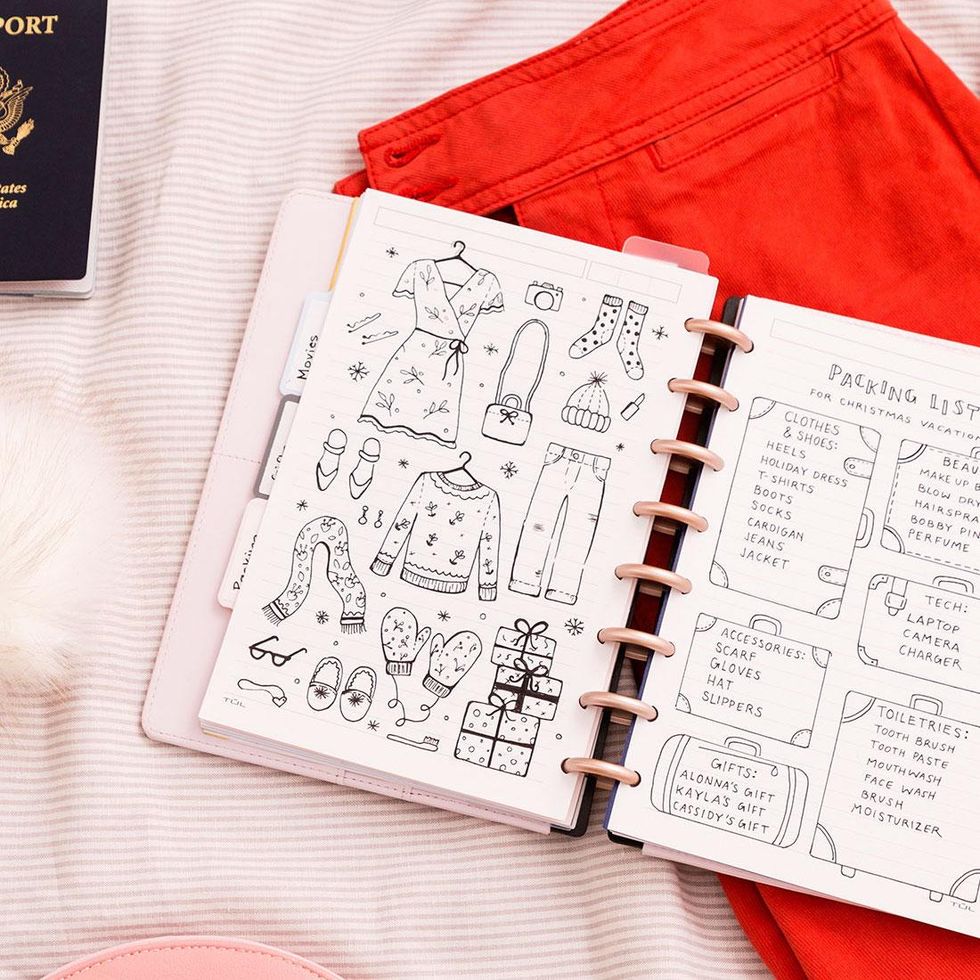 PORT
ates
ica
Movies
Packing
TUL
PACKING LIST
FOR CHRISTMAS VACATIO
CLOTHES
& SHOES:
HEELS
HOLIDAY DRESS
T-SHIRTS
BOOTS
SOCKS
CARDIGAN
JEANS
JACKET
BEAU
MAKE UP B
BLOW DRY
HAIRSPRA
BOBBY PIN
PERFUME
TECH:
LAPTOP
CAMERA
CHARGER
ACCESSORIES:
SCARF
GLOVES
HAT
SLIPPERS
TOILETRIES:
TOOTH BRUSH
TOOTH PASTE
MOUTHWASH
FACE WASH
BRUSH
MOISTURIZER
GIFTS:
ALONNA'S GIFT
KAYLA'S GIFT
CASSIDY'S GIFT
TUL